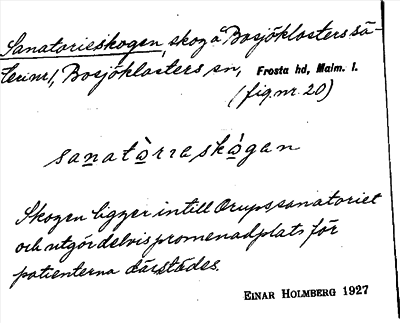 Sanatorieskogen, skog å Bosjöklosters sä-
teri m 1, Bosjöklosters sn, Frosta hd, Malm. l.
(fig. nr. 20)
sanatòrieskògan
Skogen ligger intill Orupssanatoriet
och utgör delvis promenadplats för
patienterna därstädes.
EINAR HOLMBERG 1927